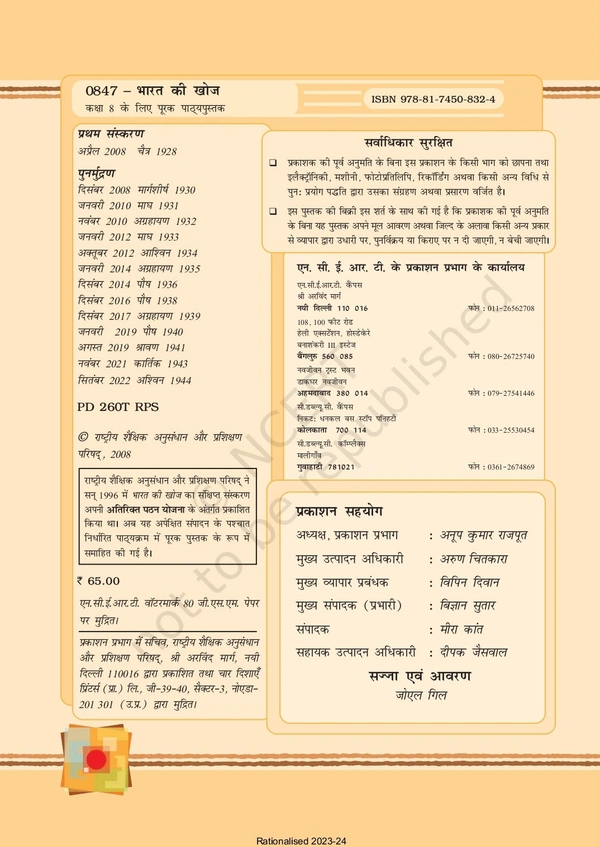 0847 – भारत की खोज
कक्षा 8 के लिए पूरक पाठ्यपुस्तक
ISBN 978-81-7450-832-4
प्रथम संस्करण
अप्रैल 2008 चैत्र 1928
पुनर्मुद्रण
दिसंबर 2008 मार्गशीर्ष 1930
जनवरी 2010 माघ 1931
नवंबर 2010 अग्रहायण 1932
जनवरी 2012 माघ 1933
अक्तूबर 2012 आश्विन 1934
जनवरी 2014 अग्रहायण 1935
दिसंबर 2014 पौष 1936
दिसंबर 2016 पौष 1938
दिसंबर 2017 अग्रहायण 1939
जनवरी 2019 पौष 1940
अगस्त 2019 श्रावण 1941
नवंबर 2021 कार्तिक 1943
सितंबर 2022 अश्विन 1944
PD 260T RPS
© राष्ट्रीय शैक्षिक अनुसंधान और प्रशिक्षण
परिषद् , 2008
राष्ट्रीय शैक्षिक अनुसंधान और प्रशिक्षण परिषद् ने
सन् 1996 में भारत की खोज का संक्षिप्त संस्करण
अपनी अतिरिक्त पठन योजना के अंतर्गत प्रकाशित
किया था। अब यह अपेक्षित संपादन के पश्चात
निर्धारित पाठ्यक्रम में पूरक पुस्तक के रूप में
समाहित की गई है।
₹ 65.00
एन.सी.ई.आर.टी. वॉटरमार्क 80 जी.एस.एम. पेपर
पर मुद्रित।
प्रकाशन प्रभाग में सचिव, राष्ट्रीय शैक्षिक अनुसंधान
और प्रशिक्षण परिषद्, श्री अरविंद मार्ग, नयी
दिल्ली 110016 द्वारा प्रकाशित तथा चार दिशाएँ
प्रिंटर्स (प्रा.) लि., जी-39-40, सैक्टर-3, नोएडा-
201 301 (उ.प्र.) द्वारा मुद्रित।
सर्वाधिकार सुरक्षित
❑ प्रकाशक की पूर्व अनुमति के बिना इस प्रकाशन के किसी भाग को छापना तथा
इलैक्ट्रॉनिकी, मशीनी, फोटोप्रतिलिपि, रिकॉर्डिंग अथवा किसी अन्य विधि से
पुन: प्रयोग पद्धति द्वारा उसका संग्रहण अथवा प्रसारण वर्जित है।
❑ इस पुस्तक की बिक्री इस शर्त के साथ की गई है कि प्रकाशक की पूर्व अनुमति
के बिना यह पुस्तक अपने मूल आवरण अथवा जिल्द के अलावा किसी अन्य प्रकार
से व्यापार द्वारा उधारी पर, पुनर्विक्रय या किराए पर न दी जाएगी, न बेची जाएगी।
एन. सी. ई. आर. टी. के प्रकाशन प्रभाग के कार्यालय
एन.सी.ई.आर.टी. कैंपस
श्री अरविंद मार्ग
नयी दिल्ली 110 016 फोन : 011-26562708
108, 100 फीट रोड
हेली एक्सटेंशन, होस्डेकेरे
बनाशंकरी III इस्टेज
बैंगलुरु 560 085 फोन : 080-26725740
नवजीवन ट्रस्ट भवन
डाकघर नवजीवन
अहमदाबाद 380 014 फोन : 079-27541446
सी.डब्ल्यू.सी. कैंपस
निकट: धनकल बस स्टॉप पनिहटी
कोलकाता 700 114 फोन : 033-25530454
सी.डब्ल्यू.सी. कॉम्प्लैक्स
मालीगाँव
गुवाहाटी 781021 फोन : 0361-2674869
प्रकाशन सहयोग
अध्यक्ष, प्रकाशन प्रभाग : अनूप कुमार राजपूत
मुख्य उत्पादन अधिकारी : अरुण चितकारा
मुख्य व्यापार प्रबंधक : विपिन दिवान
मुख्य संपादक (प्रभारी) : बिज्ञान सुतार
संपादक : मीरा कांत
सहायक उत्पादन अधिकारी : दीपक जैसवाल
सज्जा एवं आवरण
जोएल गिल
© NCERT
not to be republished
Rationalised 2023-24